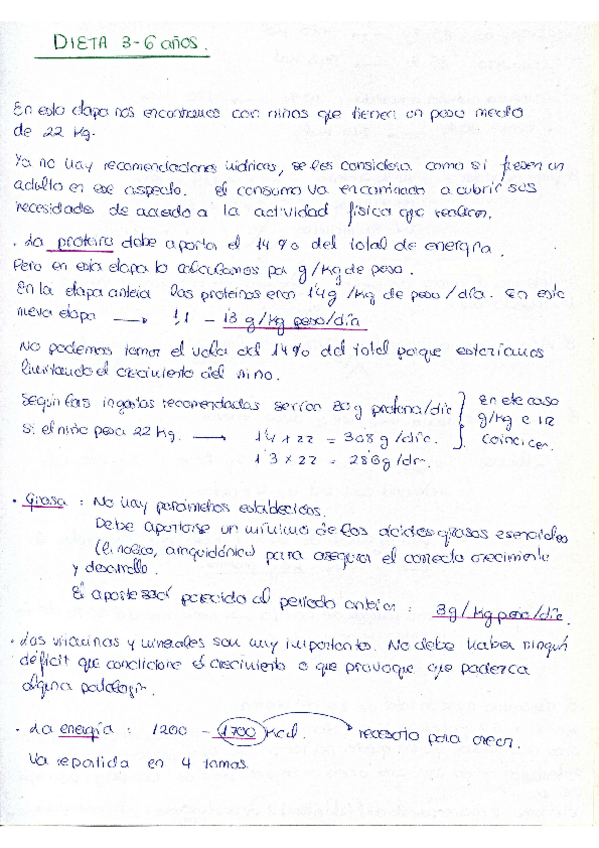 DIETA 3-6 años.
En esta etapa nos encontramos con niños que tienen un peso medio
de 22 Kg.
Ya no hay recomendaciones hídricas, se les considera como si fuesen un
adulto en ese aspecto. El consumo va encaminado a cubrir sus
necesidades de acuerdo a la actividad física que realicen.
. La proteína debe aportar el 14% del total de energía.
Pero en esta etapa lo calculamos por g/kg de peso.
En la etapa anterior las proteínas eran 1'4g/kg de peso/día. En esta
nueva etapa → 1,1 - 1'3 g/kg peso/día
No podemos tomar el valor del 14% del total porque estaríamos
limitando el crecimiento del niño.
Según las ingestas recomendadas serían 30g proteína/día } En este caso
Si el niño pesa 22 Kg. → 1'4 x 22 = 30'8 g/día. } g/kg e IR
1'3 x 22 = 28'6g/día. } coinciden.
· Grasa : No hay parámetros establecidos.
Debe aportarse un mínimo de los ácidos grasos esenciales
(linoleico, araquidónico) para asegurar el correcto crecimiento
y desarrollo.
El aporte será parecido al periodo anterior : 3g/kg peso/día.
· Las vitaminas y minerales son muy importantes. No debe haber ningún
déficit que condicione el crecimiento o que provoque que padezca
alguna patología.
· La energía : 1200 - 1700 Kcal. → necesario para crecer.
Va repartida en 4 tomas.